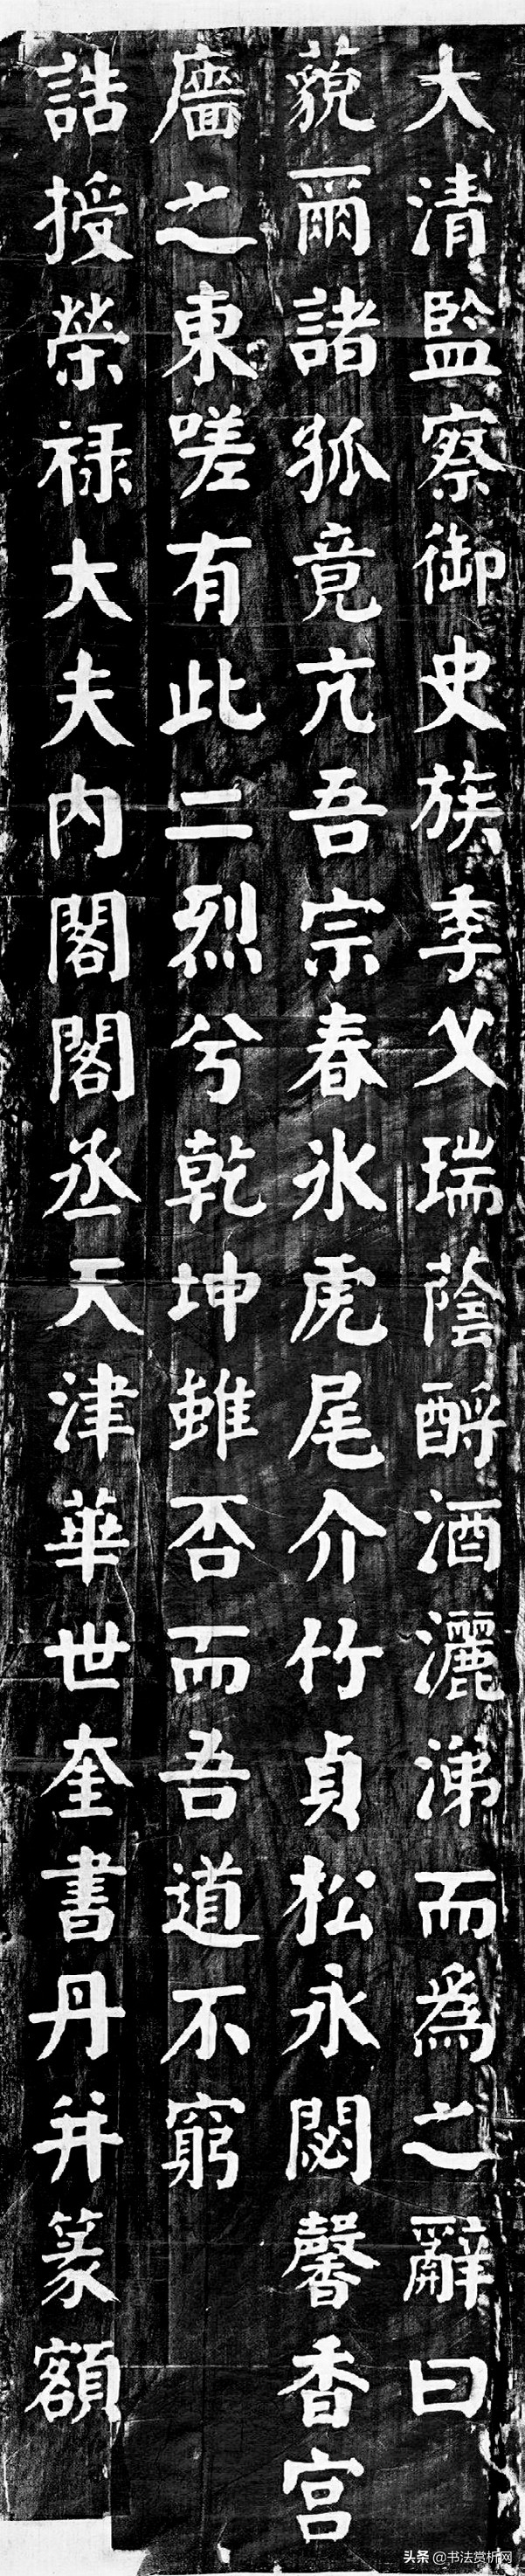 大清監察御史族季父瑞蔭酹酒灑涕而為之辭曰
藐爾諸孤竟亢吾宗春氷虎尾介竹貞松永閟馨香宮
廧之東嗟有此二烈兮乾坤雖否而吾道不窮
誥授榮禄大夫內閣閣丞天津華世奎書丹并篆額
头条 @书法赏析网